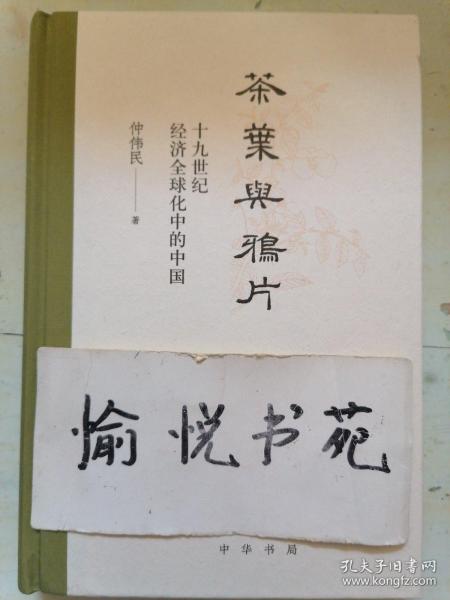 茶葉與鴉片
十九世纪
经济全球化中的中国
仲伟民
著
愉悦书苑
中华书局
孔夫子旧书网
www.kongfz.com